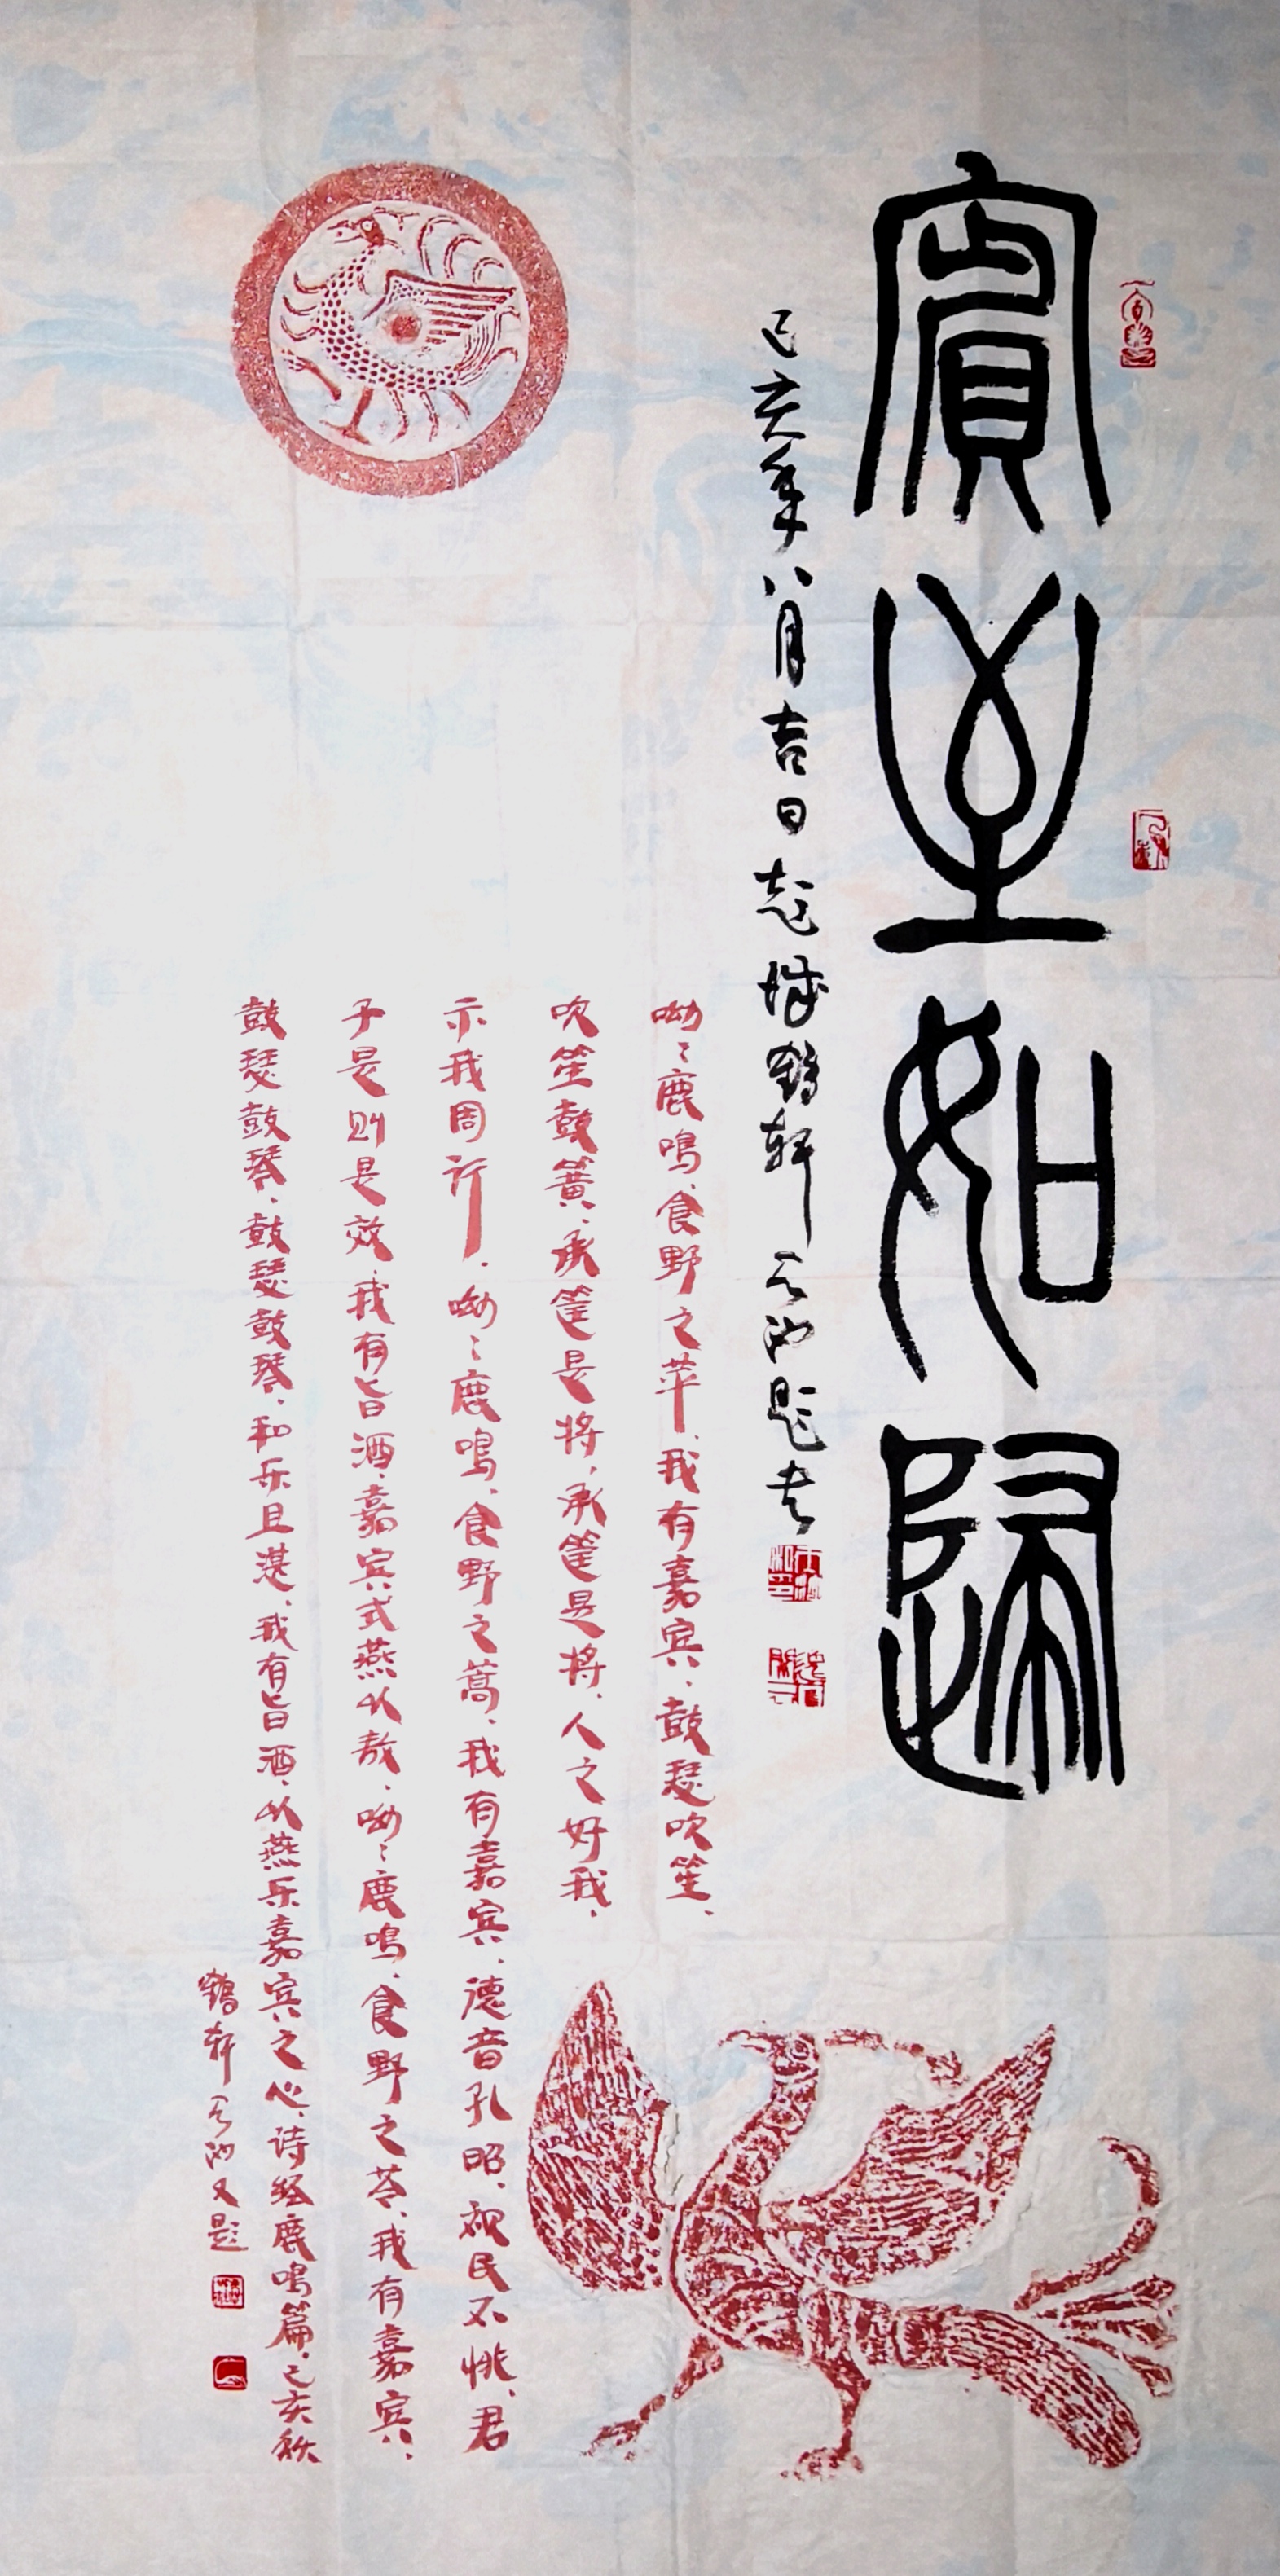 賓至如歸
己亥年八月吉日赵城鹤轩云池题志
呦々鹿鸣、食野之苹、我有嘉宾、鼓瑟吹笙、
吹笙鼓簧、承筐是将、承筐是将、人之好我、
示我周行、呦々鹿鸣、食野之蒿、我有嘉宾、德音孔昭、视民不恌、君
子是则是效、我有旨酒、嘉宾式燕以敖、呦々鹿鸣、食野之芩、我有嘉宾、
鼓瑟鼓琴、鼓瑟鼓琴、和乐且湛、我有旨酒、以燕乐嘉宾之心、诗经鹿鸣篇、己亥秋
鹤轩云池又题